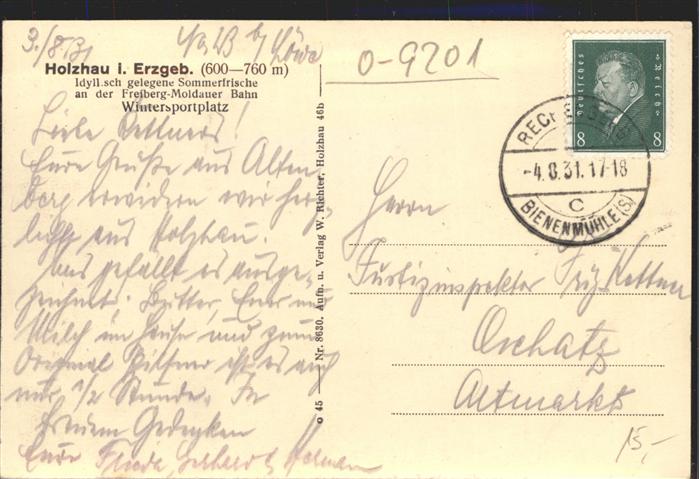 3./8.31
Holzhau i. Erzgeb. (600—760 m)
Idyll.sch gelegene Sommerfrische
an der Freiberg-Moldauer Bahn
Wintersportplatz
Liebe Kettners!
Eure Grüße aus Alten
berg erwidern wir herz
lichst aus Holzhau.
Uns gefällt es ausge
zeichnet. Butter, Eier und
Milch im Hause und zum
Original ist es auch
nur 1/2 Stunde. In
treuem Gedenken
Eure Frieda,
o 45 — Nr. 8630. Aufn. u. Verlag W. Richter, Holzhau 46b
0-9201
Deutsches Reich
8 8
-4.8.31.17-18
C
BIENENMÜHLE (S)
Herrn
Justizinspektor Kettner
Oschatz
Altmarkt
15,-